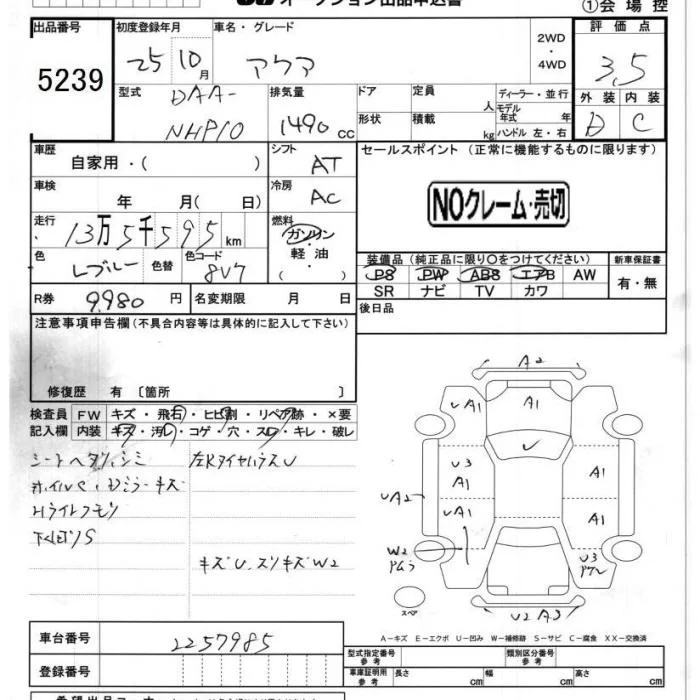 ①会場控
出品番号 初度登録年月 車名・グレード 評価点
5239 25 10月 アクア 2WD・4WD 3.5
型式 DAA-NHP10 排気量 1490cc ドア 定員 人 ディーラー・並行 外装 内装
形状 積載 kg モデル年式 年 ハンドル 左・右 D C
車歴 自家用・( ) シフト AT セールスポイント (正常に機能するものに限ります)
車検 年 月( 日) 冷房 AC NOクレーム・売切
走行 13万5千595km 燃料 ガソリン・軽油・( )
色 Lブルー 色替 色コード 8V7
装備品 (純正品に限り○をつけてください) 新車保証書
PS PW ABS エアB AW 有・無
SR ナビ TV カワ
R券 9980円 名変期限 月 日 後日品
注意事項申告欄 (不具合内容等は具体的に記入して下さい)
修復歴 有 〔箇所 〕
検査員 FW キズ・飛石・ヒビ割・リペア跡・×要
記入欄 内装 キズ・汚レ・コゲ・穴・スレ・キレ・破レ
シートヘタリ、シミ
下廻りS
キズU.スリキズW2
A2
UA1 A1 A1
U
U3 A1 A1
UA2 UA1 A1
W2 U3
スペア
U2 A3
A-キズ E-エクボ U-凹み W-補修跡 S-サビ C-腐食 XX-交換済
車台番号 2257985
登録番号
型式指定番号 参考 類別区分番号 参考
車庫証明用 参考 長さ cm 幅 cm 高さ cm